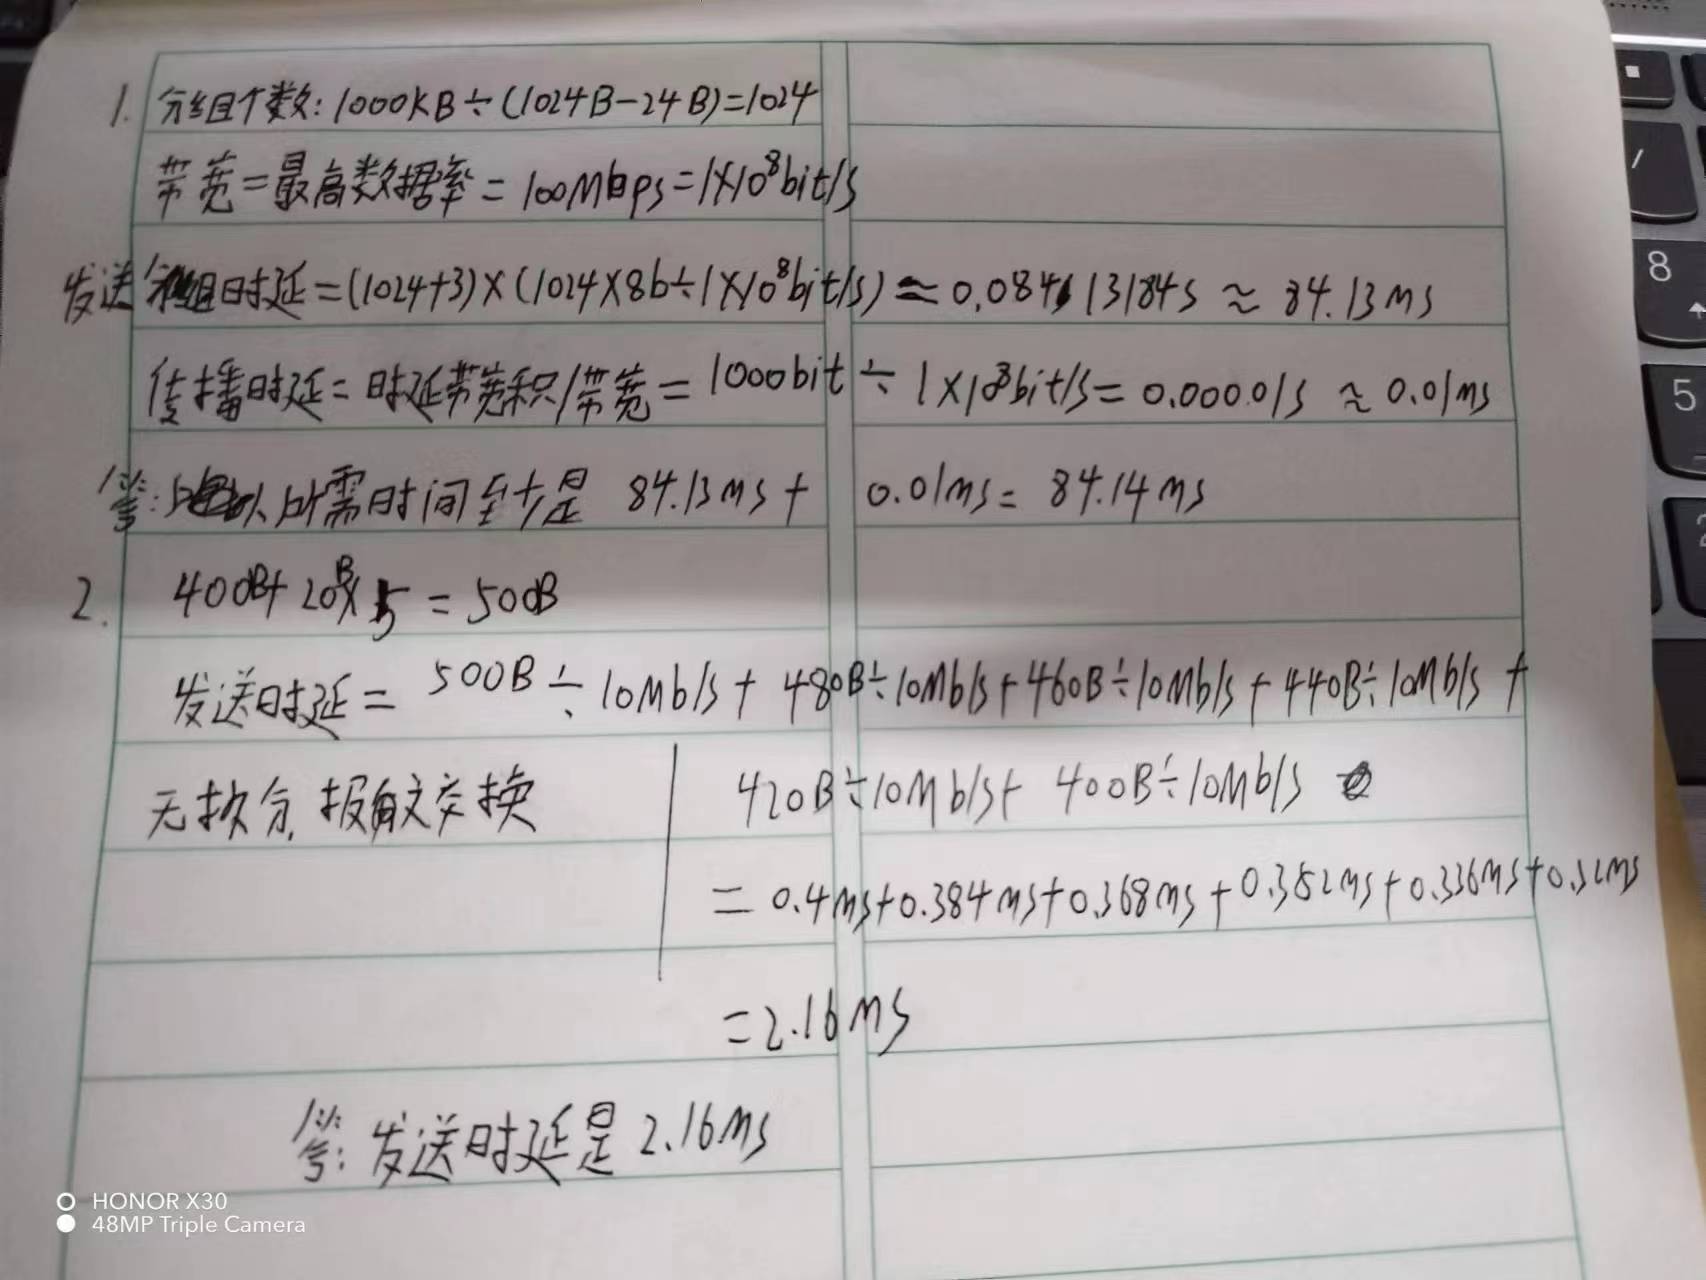 1. 分组个数:1000KB÷(1024B-24B)=1024
带宽=最高数据率=100Mbps=1×10⁸bit/s
发送分组时延=(1024+3)×(1024×8b÷1×10⁸bit/s)≈0.08413184s≈84.13ms
传播时延=时延带宽积/带宽=1000bit÷1×10⁸bit/s=0.00001s≈0.01ms
答:所需时间至少是 84.13ms+0.01ms=84.14ms
2. 400B+20B×5=500B
发送时延=500B÷10Mb/s+480B÷10Mb/s+460B÷10Mb/s+440B÷10Mb/s+
无拆分,报文交换
420B÷10Mb/s+400B÷10Mb/s
=0.4ms+0.384ms+0.368ms+0.352ms+0.336ms+0.32ms
=2.16ms
答:发送时延是2.16ms
HONOR X30
48MP Triple Camera
/
8
5
2